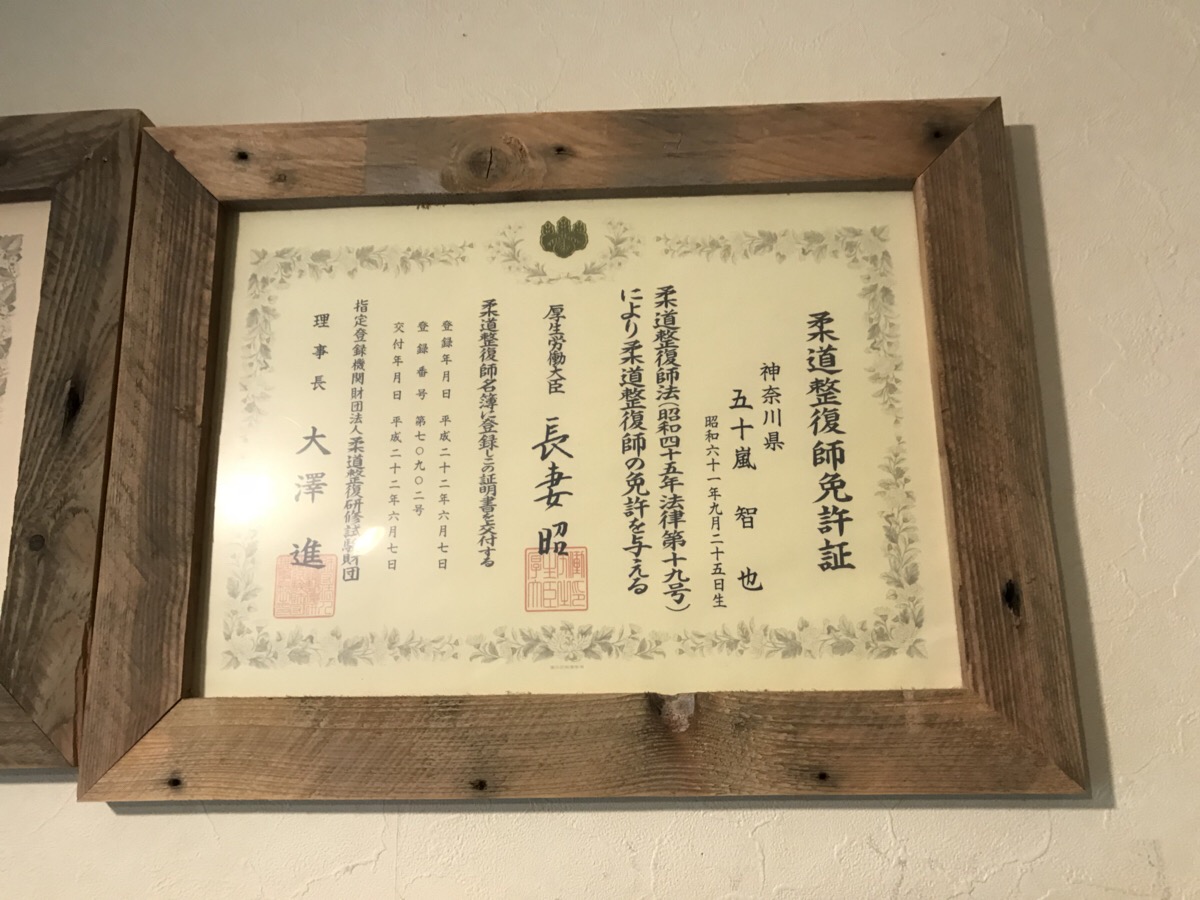 柔道整復師免許証
神奈川県
五十嵐 智也
昭和六十一年九月二十五日生
柔道整復師法(昭和四十五年法律第十九号)
により柔道整復師の免許を与える
厚生労働大臣 長妻昭
柔道整復師名簿に登録しこの証明書を交付する
登録年月日 平成二十二年六月七日
登録番号 第七〇九〇二号
交付年月日 平成二十二年六月七日
指定登録機関財団法人柔道整復研修試験財団
理事長 大澤進